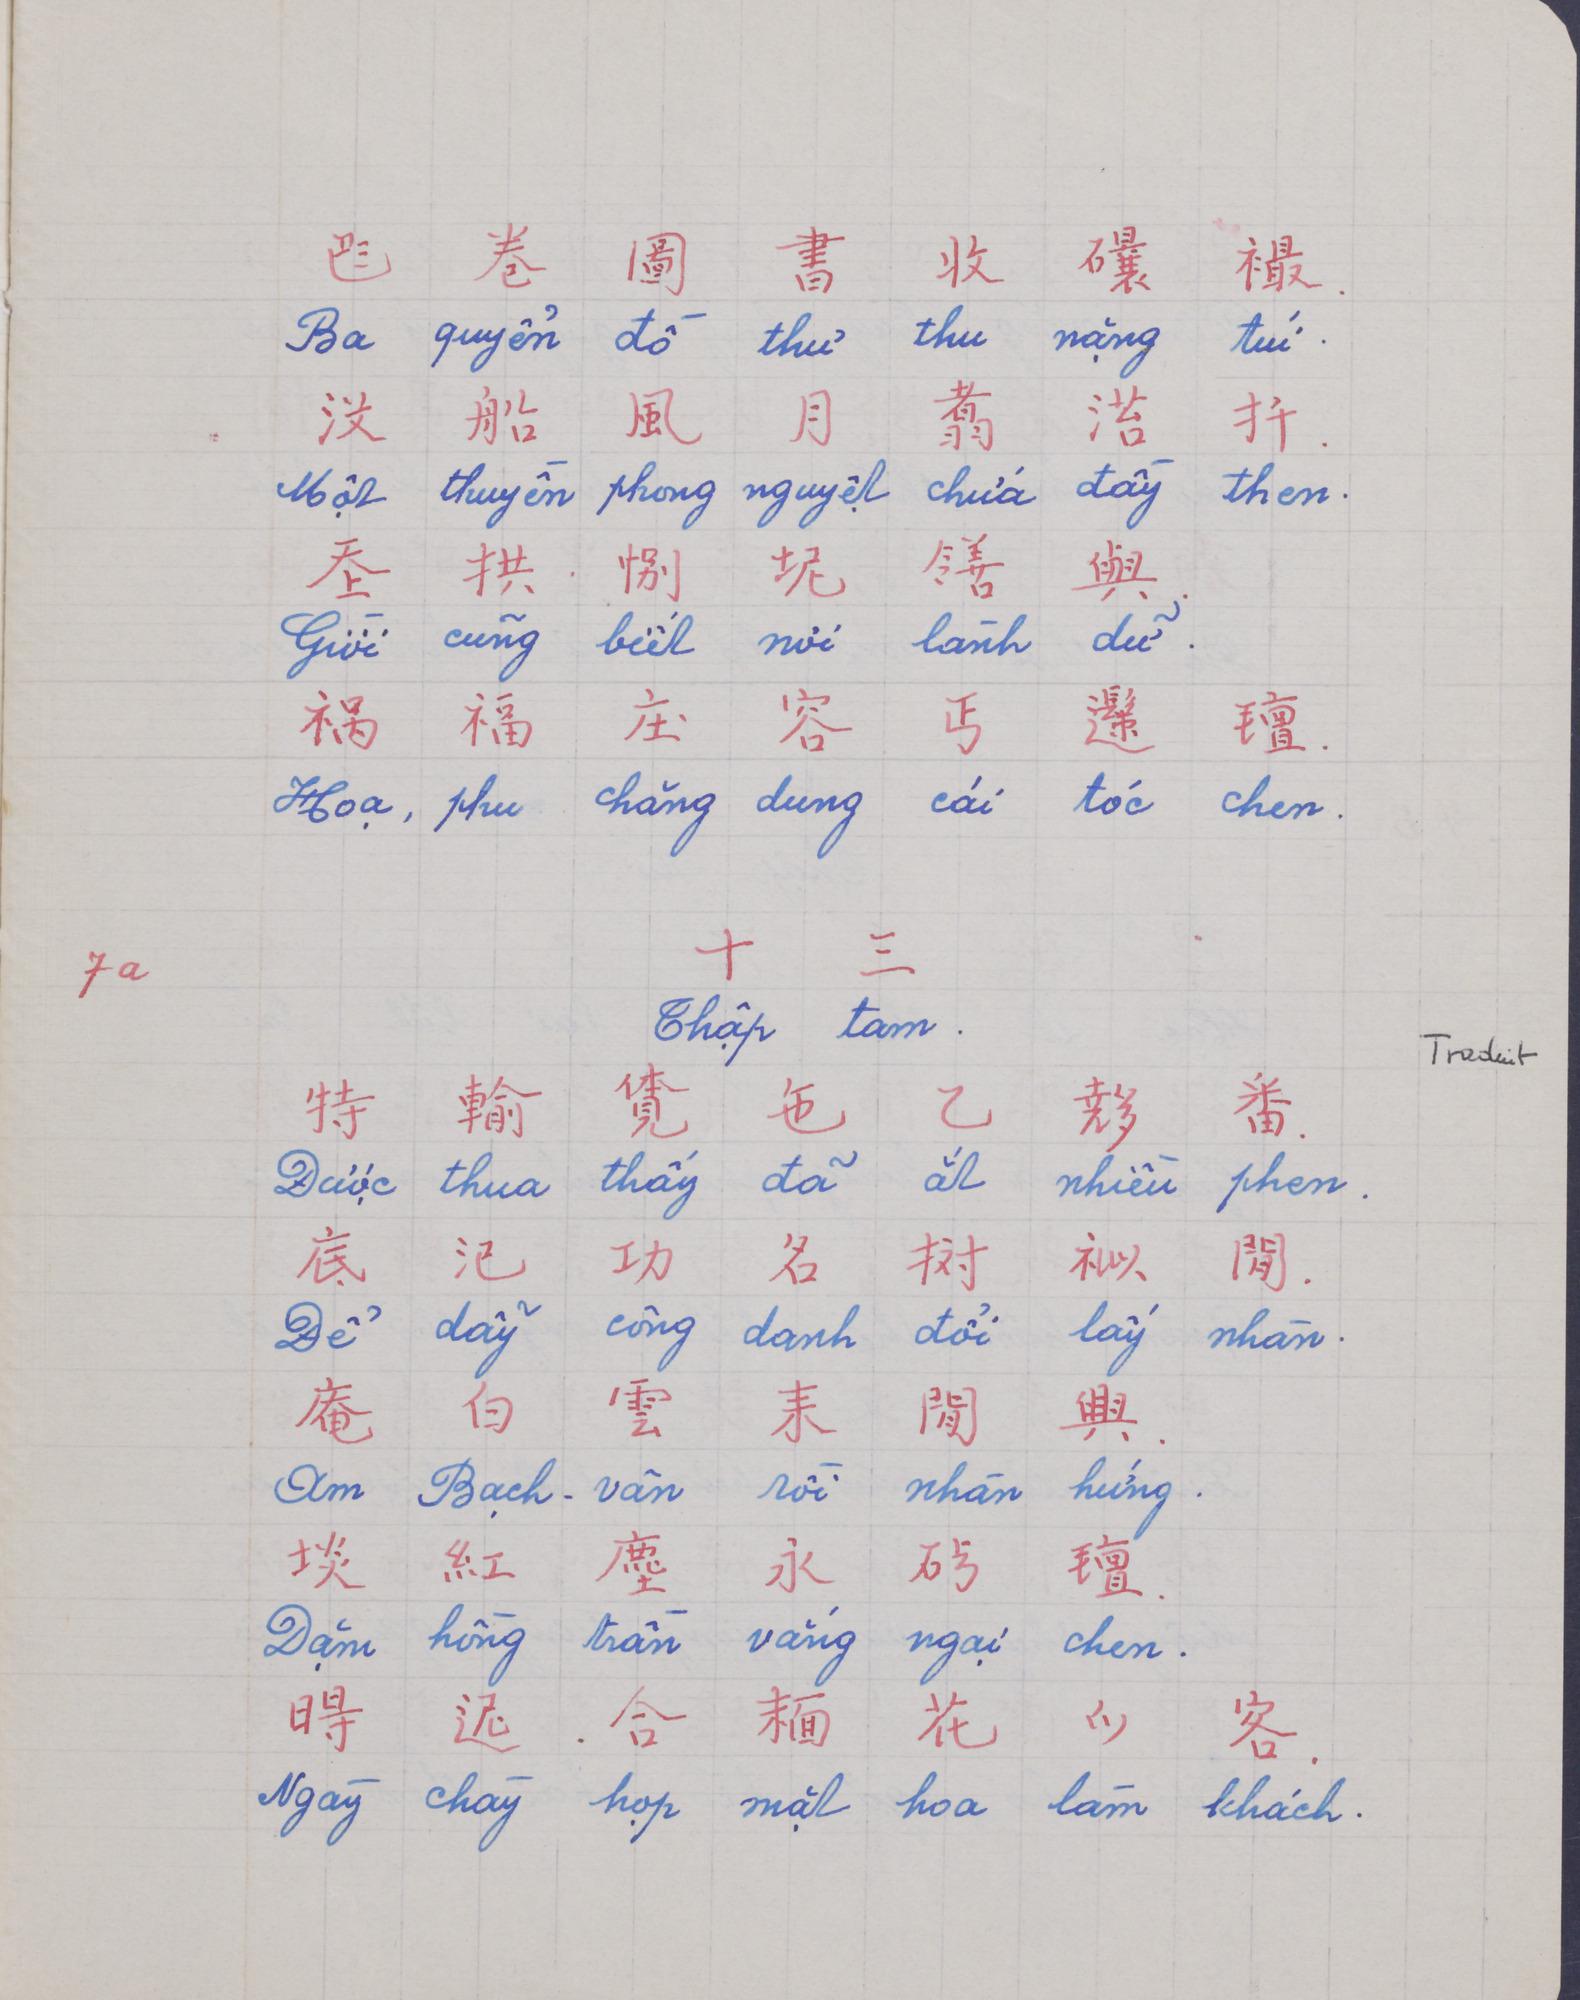 𠀧 卷 圖 書 收 𥗾 襊.
Ba quyển đồ thư thu nặng túi.
没 船 風 月 翥 滞 扦.
Một thuyền phong nguyệt chứa đầy then.
𡗶 拱 別 坭 𠎬 與.
Giời cũng biết nơi lành dữ.
禍 福 庄 容 丐 𩯀 氈.
Hoạ, phu chăng dung cái tóc chen.
7a
十 三
Thập tam.
Traduit
特 輸 覓 㐌 乙 𡗊 番.
Được thua thấy đã ắt nhiều phen.
底 汜 功 名 𢬭 𥙩 閒.
Để dẫy công danh đổi lấy nhàn.
庵 白 雲 耒 閒 興.
Am Bạch-vân rồi nhàn hứng.
埮 紅 塵 永 𥐦 氈.
Dặm hồng trần vắng ngại chen.
𣈗 迡 合 𩈘 花 𫜵 客.
Ngày chầy họp mặt hoa làm khách.